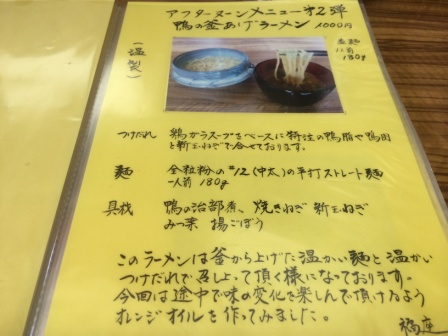 アフターヌーンメニュー㐧2弾
鴨の釜あげラーメン 1000円
(温製)
並麺
1人前
180g
つけだれ 鶏ガラスープをベースに特注の鴨脂や鴨肉
と新玉ねぎで合せております。
麺 全粒粉の#12(中太)の平打ストレート麺
一人前 180g
具材 鴨の治部煮、焼きねぎ 新玉ねぎ
みつ葉 揚ごぼう
このラーメンは釜から上げた温かい麺と温かい
つけだれで召し上って頂く様になっております。
今回は途中で味の変化を楽しんで頂けるよう
オレンジオイルを作ってみました。